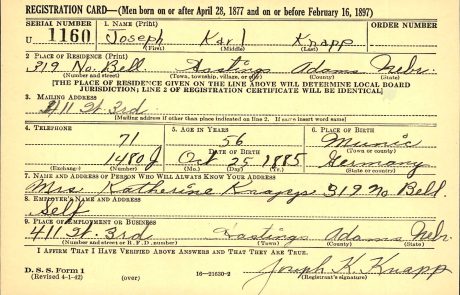 REGISTRATION CARD—(Men born on or after April 28, 1877 and on or before February 16, 1897)
SERIAL NUMBER 1. NAME (Print) ORDER NUMBER
U 1160 Joseph Karl Knapp
(First) (Middle) (Last)
2. PLACE OF RESIDENCE (Print)
319 No. Bell Hasting Adams Nebr
(Number and street) (Town, township, village, or city) (County) (State)
[THE PLACE OF RESIDENCE GIVEN ON THE LINE ABOVE WILL DETERMINE LOCAL BOARD
JURISDICTION; LINE 2 OF REGISTRATION CERTIFICATE WILL BE IDENTICAL]
3. MAILING ADDRESS
411 W. 3rd
[Mailing address if other than place indicated on line 2. If same insert word same]
4. TELEPHONE 5. AGE IN YEARS 6. PLACE OF BIRTH
71 56 Munic
DATE OF BIRTH (Town or county)
1480 J Oct 25 1885 Germany
(Exchange) (Number) (Mo.) (Day) (Yr.) (State or country)
7. NAME AND ADDRESS OF PERSON WHO WILL ALWAYS KNOW YOUR ADDRESS
Mrs Katherine Knapp 319 No Bell
8. EMPLOYER'S NAME AND ADDRESS
Self
9. PLACE OF EMPLOYMENT OR BUSINESS
411 W. 3rd Hastings Adams Nebr
(Number and street or R. F. D. number) (Town) (County) (State)
I AFFIRM THAT I HAVE VERIFIED ABOVE ANSWERS AND THAT THEY ARE TRUE.
D. S. S. Form 1
(Revised 4-1-42) (over) 16—21630-2 Joseph K. Knapp
(Registrant's signature)